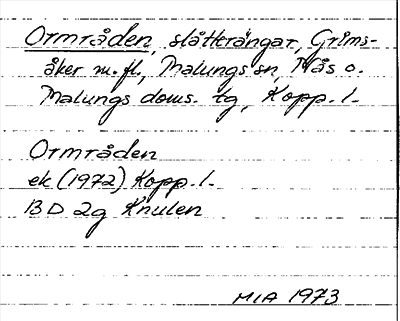 Ormråden, slåtterängar, Grims-
åker m.fl., Malungs sn, Nås o.
Malungs doms. tg, Kopp. l.
Ormråden
ek (1972) Kopp. l.
13 D 2g Knulen
MIA 1973